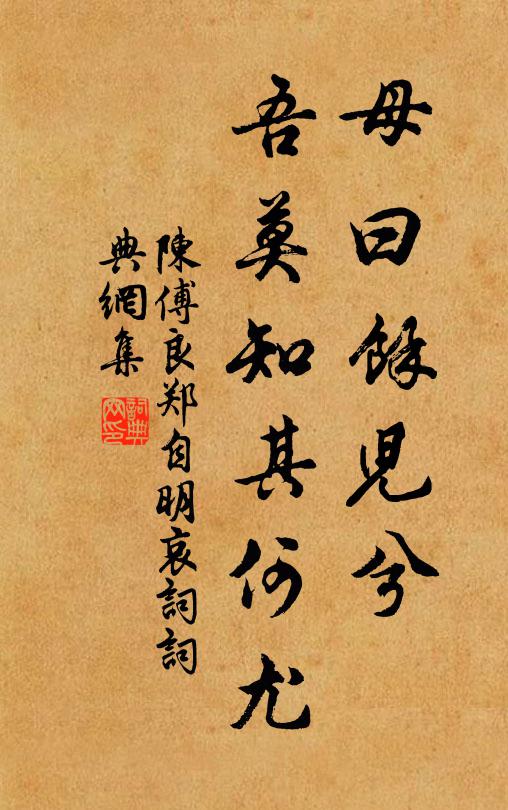 母曰餘兒兮
吾莫知其何尤
陳傅良郑自明哀詞詞
典網集
詞典网印